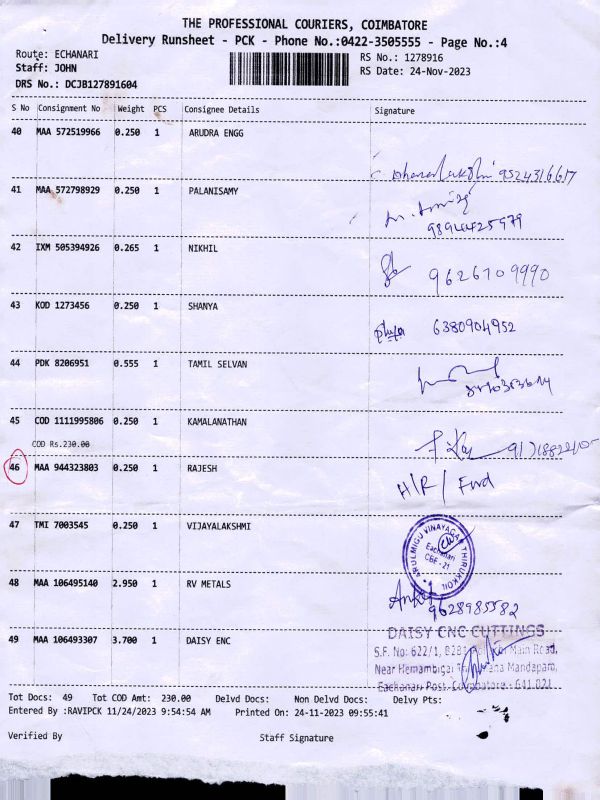 THE PROFESSIONAL COURIERS, COIMBATORE
Delivery Runsheet - PCK - Phone No.:0422-3505555 - Page No.:4
Route: ECHANARI
Staff: JOHN
DRS No.: DCJB127891604
RS No.: 1278916
RS Date: 24-Nov-2023
S No Consignment No Weight PCS Consignee Details Signature
40 MAA 572519966 0.250 1 ARUDRA ENGG
9524316617
41 MAA 572798929 0.250 1 PALANISAMY
9894425979
42 IXM 505394926 0.265 1 NIKHIL
9626709990
43 KOD 1273456 0.250 1 SHANYA
6380904952
44 PDK 8206951 0.555 1 TAMIL SELVAN
45 COD 1111995806 0.250 1 KAMALANATHAN
COD Rs.230.00
46 MAA 944323803 0.250 1 RAJESH
H/R / Fwd
47 TMI 7003545 0.250 1 VIJAYALAKSHMI
ARULMIGU VINAYAGAR THIRUKKOIL
Eachanari
CBE - 21
48 MAA 106495140 2.950 1 RV METALS
9628985582
49 MAA 106493307 3.700 1 DAISY ENC
DAISY CNC CUTTINGS
S.F. No: 622/1, Main Road,
Near Hemambigai Mandapam,
Eachanari Post, Coimbatore - 641 021
Tot Docs: 49 Tot COD Amt: 230.00 Delvd Docs: Non Delvd Docs: Delvy Pts:
Entered By :RAVIPCK 11/24/2023 9:54:54 AM Printed On: 24-11-2023 09:55:41
Verified By Staff Signature